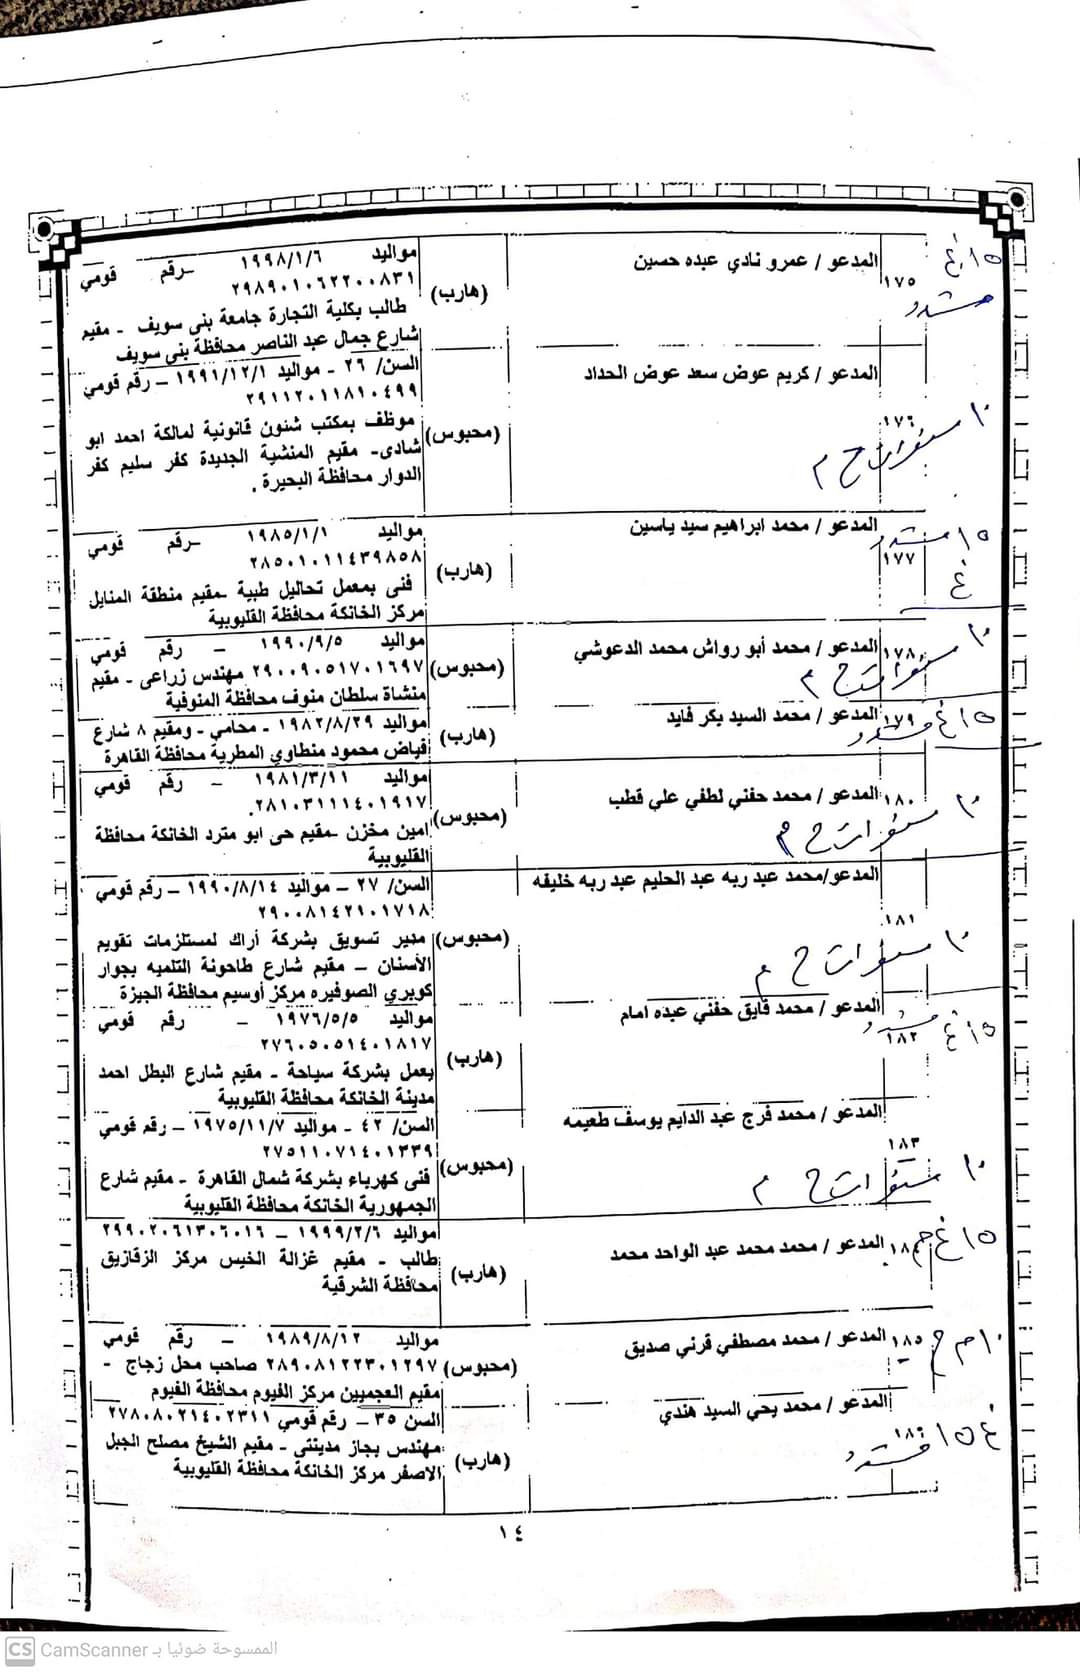 ١٧٥
المدعو / عمرو نادي عبده حسين
(هارب)
مواليد ١٩٩٨/١/٦ –رقم قومي
٢٩٨٩٠١٠٦٢٢٠٠٨٣١
طالب بكلية التجارة جامعة بنى سويف - مقيم
شارع جمال عبد الناصر محافظة بنى سويف
١٧٦
المدعو / كريم عوض سعد عوض الحداد
(محبوس)
السن/ ٢٦ - مواليد ١٩٩١/١٢/١ – رقم قومي
٢٩١١٢٠١١٨١٠٤٩٩
موظف بمكتب شئون قانونية لمالكة احمد ابو
شادى- مقيم المنشية الجديدة كفر سليم كفر
الدوار محافظة البحيرة .
١٧٧
المدعو / محمد ابراهيم سيد ياسين
(هارب)
مواليد ١٩٨٥/١/١ –رقم قومي
٢٨٥٠١٠١١٤٣٩٨٥٨
فنى بمعمل تحاليل طبية -مقيم منطقة المنايل
مركز الخانكة محافظة القليوبية
١٧٨
المدعو / محمد أبو رواش محمد الدعوشي
(محبوس)
مواليد ١٩٩٠/٩/٥ – رقم قومي
٢٩٠٠٩٠٥١٧٠١٦٩٧ مهندس زراعى - مقيم
منشاة سلطان منوف محافظة المنوفية
١٧٩
المدعو / محمد السيد بكر فايد
(هارب)
مواليد ١٩٨٢/٨/٢٩ - محامي - ومقيم ٨ شارع
فياض محمود منطاوي المطرية محافظة القاهرة
١٨٠
المدعو / محمد حفني لطفي علي قطب
(محبوس)
مواليد ١٩٨١/٣/١١ – رقم قومي
٢٨١٠٣١١١٤٠١٩١٧.
امين مخزن -مقيم حى ابو مترد الخانكة محافظة
القليوبية
١٨١
المدعو/محمد عبد ربه عبد الحليم عبد ربه خليفه
(محبوس)
السن/ ٢٧ – مواليد ١٩٩٠/٨/١٤ – رقم قومي
٢٩٠٠٨١٤٢١٠١٧١٨
مدير تسويق بشركة أراك لمستلزمات تقويم
الأسنان – مقيم شارع طاحونة التلميه بجوار
كوبري الصوفيره مركز أوسيم محافظة الجيزة
١٨٢
المدعو / محمد فايق حفني عبده امام
(هارب)
مواليد ١٩٧٦/٥/٥ – رقم قومي
٢٧٦٠٥٠٥١٤٠١٨١٧
يعمل بشركة سياحة - مقيم شارع البطل احمد
مدينة الخانكة محافظة القليوبية
١٨٣
المدعو / محمد فرج عبد الدايم يوسف طعيمه
(محبوس)
السن/ ٤٢ - مواليد ١٩٧٥/١١/٧ – رقم قومي
٢٧٥١١٠٧١٤٠١٣٣٩
فنى كهرباء بشركة شمال القاهرة - مقيم شارع
الجمهورية الخانكة محافظة القليوبية
المدعو / محمد محمد عبد الواحد محمد
(هارب)
مواليد ١٩٩٩/٢/٦ – ٢٩٩٠٢٠٦١٣٠٦٠١٦
طالب - مقيم غزالة الخيس مركز الزقازيق
محافظة الشرقية
١٨٥
المدعو / محمد مصطفي قرني صديق
(محبوس)
مواليد ١٩٨٩/٨/١٢ – رقم قومي
٢٨٩٠٨١٢٢٣٠١٢٩٧ صاحب محل زجاج -
مقيم العجميين مركز الفيوم محافظة الفيوم
المدعو / محمد يحي السيد هندي
(هارب)
السن ٣٥ – رقم قومي ٢٧٨٠٨٠٢١٤٠٢٣١١
مهندس بجاز مدينتى - مقيم الشيخ مصلح الجبل
الاصفر مركز الخانكة محافظة القليوبية
١٤
CS CamScanner الممسوحة ضوئيا بـ